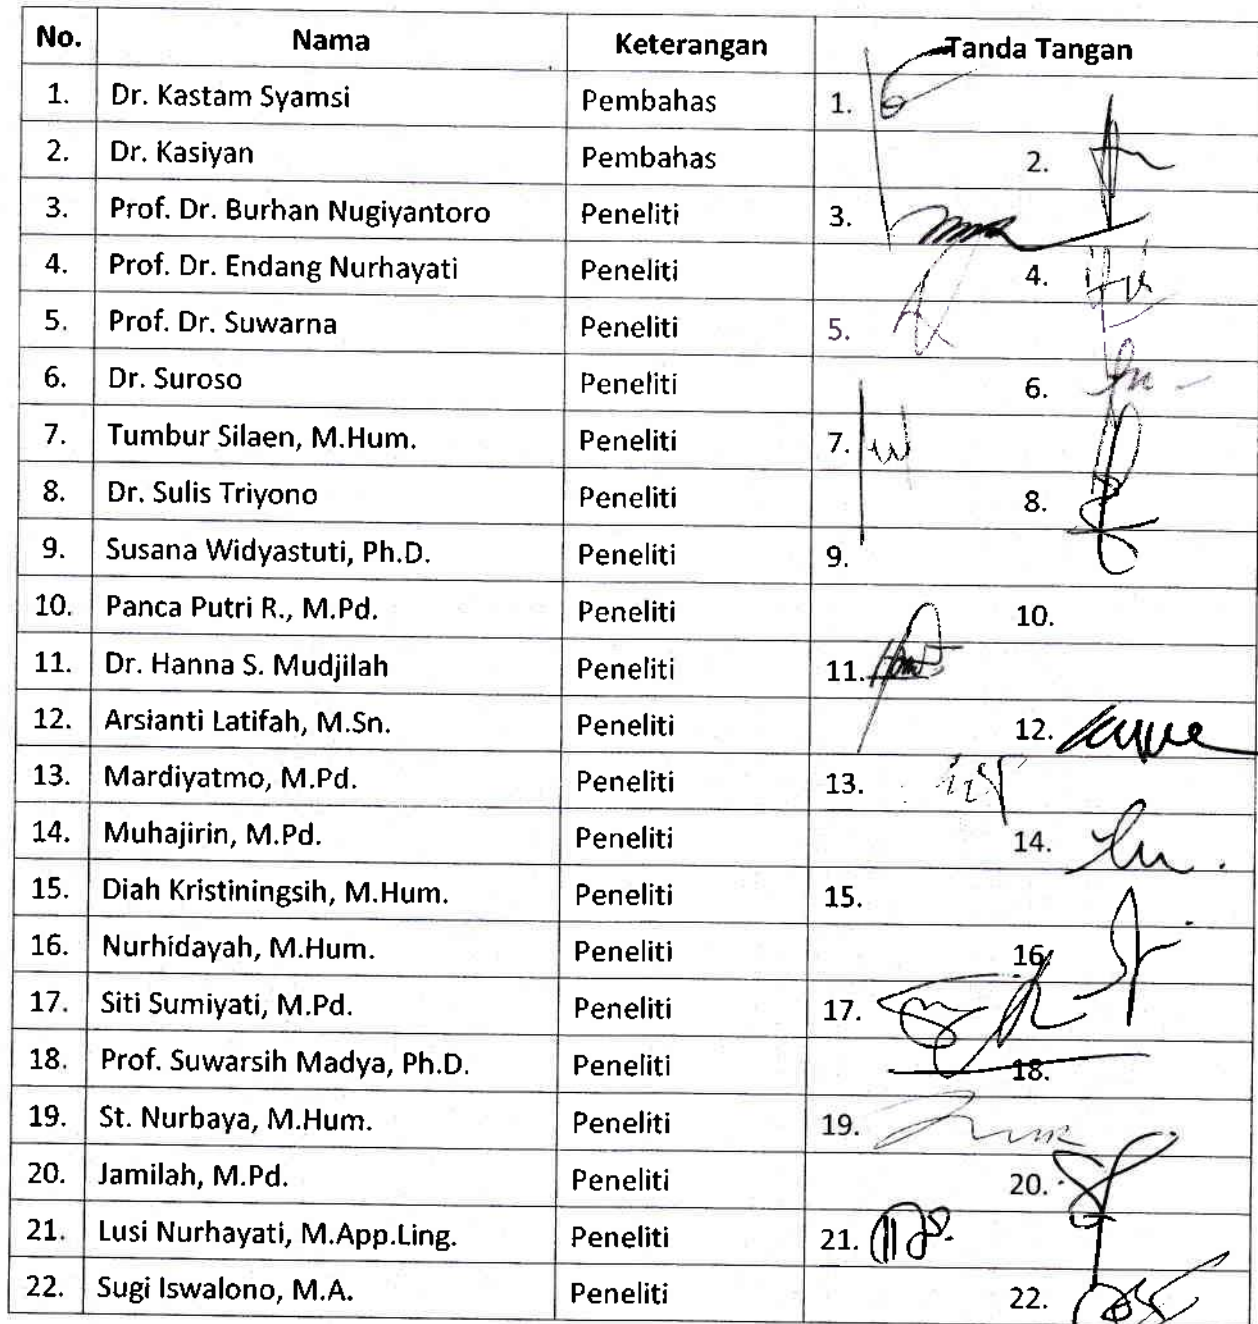 No. Nama Keterangan Tanda Tangan
1. Dr. Kastam Syamsi Pembahas 1.
2. Dr. Kasiyan Pembahas 2.
3. Prof. Dr. Burhan Nugiyantoro Peneliti 3.
4. Prof. Dr. Endang Nurhayati Peneliti 4.
5. Prof. Dr. Suwarna Peneliti 5.
6. Dr. Suroso Peneliti 6.
7. Tumbur Silaen, M.Hum. Peneliti 7.
8. Dr. Sulis Triyono Peneliti 8.
9. Susana Widyastuti, Ph.D. Peneliti 9.
10. Panca Putri R., M.Pd. Peneliti 10.
11. Dr. Hanna S. Mudjilah Peneliti 11.
12. Arsianti Latifah, M.Sn. Peneliti 12.
13. Mardiyatmo, M.Pd. Peneliti 13.
14. Muhajirin, M.Pd. Peneliti 14.
15. Diah Kristiningsih, M.Hum. Peneliti 15.
16. Nurhidayah, M.Hum. Peneliti 16.
17. Siti Sumiyati, M.Pd. Peneliti 17.
18. Prof. Suwarsih Madya, Ph.D. Peneliti 18.
19. St. Nurbaya, M.Hum. Peneliti 19.
20. Jamilah, M.Pd. Peneliti 20.
21. Lusi Nurhayati, M.App.Ling. Peneliti 21.
22. Sugi Iswalono, M.A. Peneliti 22.